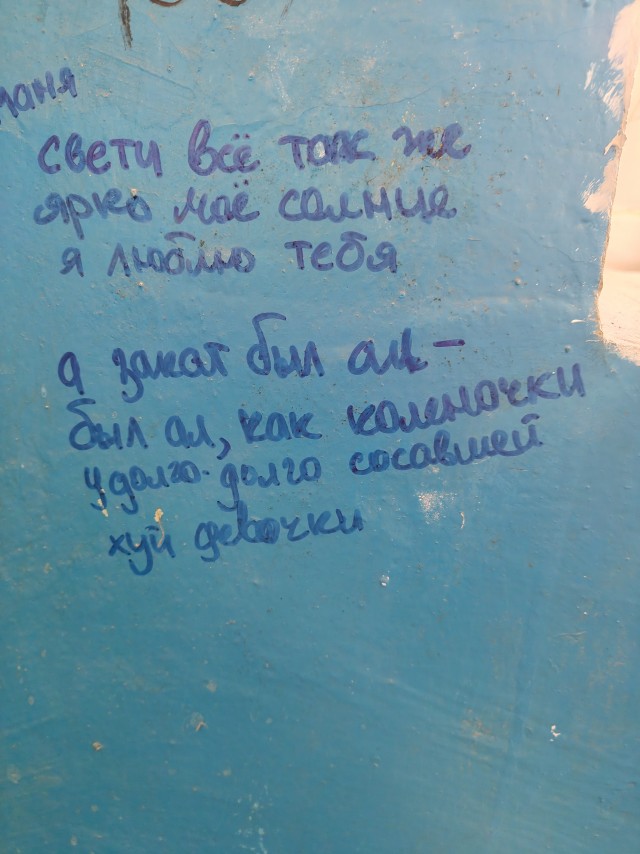 свети всё так же
ярко моё солнце
я люблю тебя
а закат был ал -
был ал, как коленочки
у долго-долго сосавшей
хуй девочки